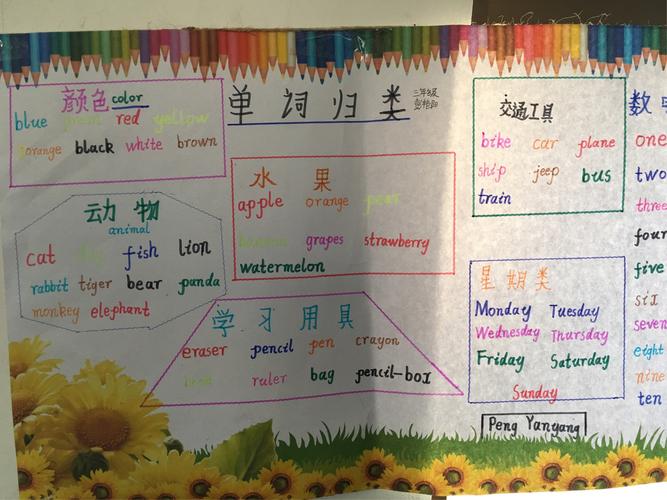 单词归类
颜色 color
blue green red yellow
orange black white brown
动物
animal
cat dog fish lion
rabbit tiger bear panda
monkey elephant
水果
apple orange pear
banana grapes strawberry
watermelon
学习用具
eraser pencil pen crayon
ruler bag pencil-box
交通工具
bike car plane
ship jeep bus
train
星期类
Monday Tuesday
Wednesday Thursday
Friday Saturday
Sunday
Peng Yanyang
数
one
two
three
four
five
six
seven
eight
nine
ten